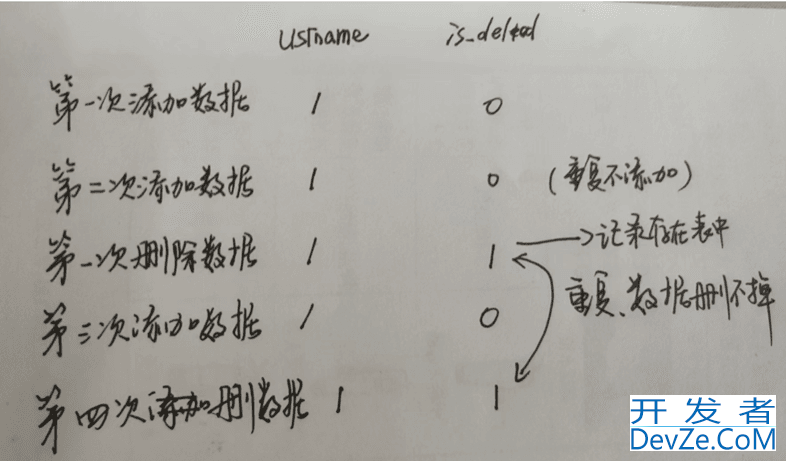 usrname is_deleted
第一次添加数据 1 0
第二次添加数据 1 0 (重复不添加)
第一次删除数据 1 1 →记录存在表中
重复、数据删不掉
第三次添加数据 1 0
第四次添加删数据 1 1
开发者
DevZe.CoM